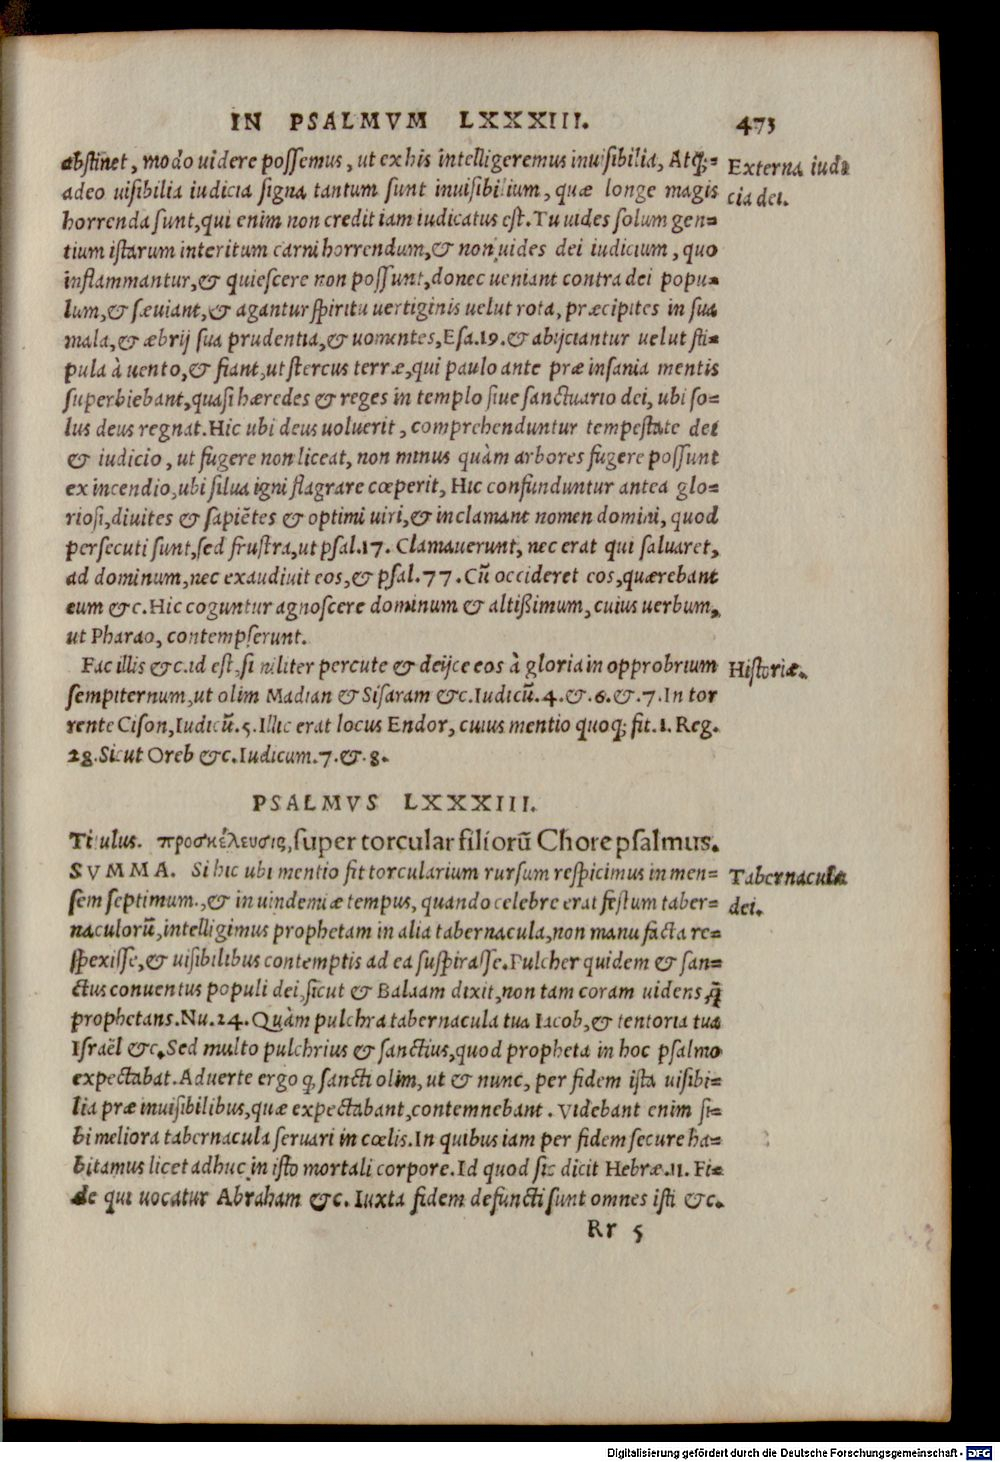 IN PSALMVM LXXXIII. 473
abstinet, modo uidere possemus, ut ex his intelligeremus inuisibilia, Atq;=
Externa iudi
adeo uisibilia iudicia signa tantum sunt inuisibilium, quæ longe magis
cia dei.
horrenda sunt, qui enim non credit iam iudicatus est. Tu uides solum gen=
tium istarum interitum carni horrendum, & non uides dei iudicium, quo
inflammantur, & quiescere non possunt, donec ueniant contra dei popu=
lum, & sæuiant, & agantur spiritu uertiginis uelut rota, præcipites in sua
mala, & æbrij sua prudentia, & uomentes, Esa.19. & abijciantur uelut sti=
pula à uento, & fiant, ut stercus terræ, qui paulo ante præ insania mentis
superbiebant, quasi hæredes & reges in templo siue sanctuario dei, ubi so=
lus deus regnat. Hic ubi deus uoluerit, comprehenduntur tempestate dei
& iudicio, ut fugere non liceat, non minus quàm arbores fugere possunt
ex incendio, ubi silua igni flagrare cœperit, Hic confunduntur antea glo=
riosi, diuites & sapiẽtes & optimi uiri, & inclamant nomen domini, quod
persecuti sunt, sed frustra, ut psal.17. Clamauerunt, nec erat qui saluaret,
ad dominum, nec exaudiuit eos, & psal.77. Cũ occideret eos, quærebant
eum &c. Hic coguntur agnoscere dominum & altißimum, cuius uerbum,
ut Pharao, contempserunt.
Fac illis &c. id est, similiter percute & deijce eos à gloria in opprobrium
Historiæ.
sempiternum, ut olim Madian & Sisaram &c. Iudicũ.4.&.6.&.7. In tor
rente Cison, Iudicũ.5. Illic erat locus Endor, cuius mentio quoq; fit.1. Reg.
28. Sicut Oreb &c. Iudicum.7.&.8.
PSALMVS LXXXIII.
Titulus. προσκέλευσις, super torcular filiorũ Chore psalmus.
SVMMA. Si hic ubi mentio fit torcularium rursum respicimus in men=
Tabernacula
sem septimum., & in uindemiæ tempus, quando celebre erat festum taber=
dei.
naculorũ, intelligimus prophetam in alia tabernacula, non manu facta re=
spexisse, & uisibilibus contemptis ad ea suspirasse. Pulcher quidem & san=
ctus conuentus populi dei, sicut & Balaam dixit, non tam coram uidens q̃
prophetans. Nu.24. Quàm pulchra tabernacula tua Iacob, & tentoria tua
Israël &c. Sed multo pulchrius & sanctius, quod propheta in hoc psalmo
expectabat. Aduerte ergo q, sancti olim, ut & nunc, per fidem ista uisibi=
lia præ inuisibilibus, quæ expectabant, contemnebant. Videbant enim si=
bi meliora tabernacula seruari in cœlis. In quibus iam per fidem secure ha=
bitamus licet adhuc in isto mortali corpore. Id quod sic dicit Hebræ.11. Fi=
de qui uocatur Abraham &c. Iuxta fidem defuncti sunt omnes isti &c.
Rr 5
Digitalisierung gefördert durch die Deutsche Forschungsgemeinschaft - DFG